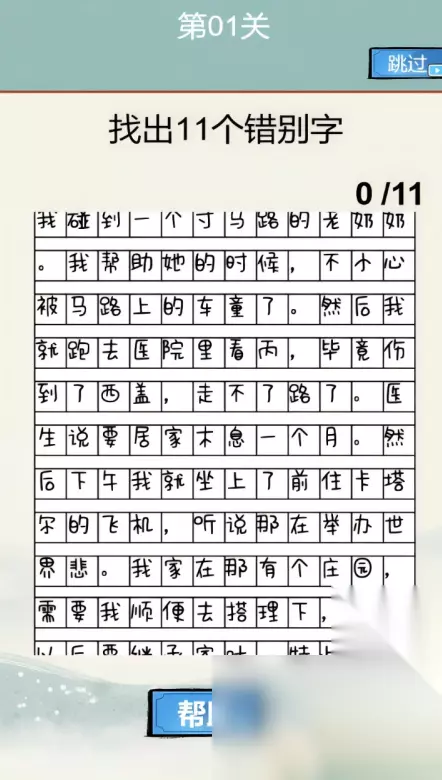 第01关
跳过
找出11个错别字
0 /11
我碰到一个寸马路的老奶奶
。我帮助她的时候，不小心
被马路上的车童了。然后我
就跑去医院里看丙，毕竟伤
到了西盖，走不了路了。医
生说要居家木息一个月。然
后下午我就坐上了前住卡塔
尔的飞机，听说那在举办世
界悲。我家在那有个庄园，
需要我顺便去搭理下，
以后要继
帮